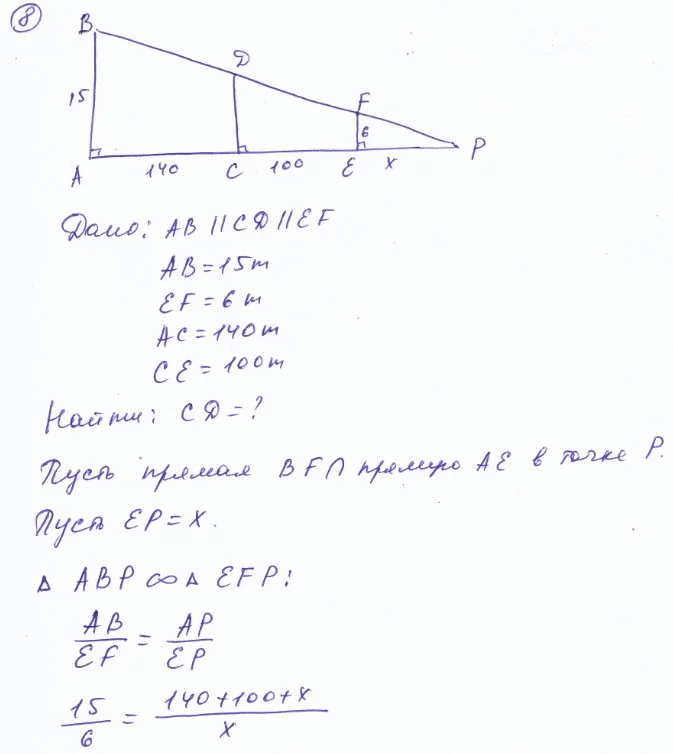 8
B
D
15
F
6
P
A 140 C 100 E x
Дано: AB || CD || EF
AB = 15m
EF = 6m
AC = 140m
CE = 100m
Найти: CD = ?
Пусть прямая BF ∩ прямую AE в точке P.
Пусть EP = x.
Δ ABP ∞ Δ EFP:
AB/EF = AP/EP
15/6 = 140+100+x/x